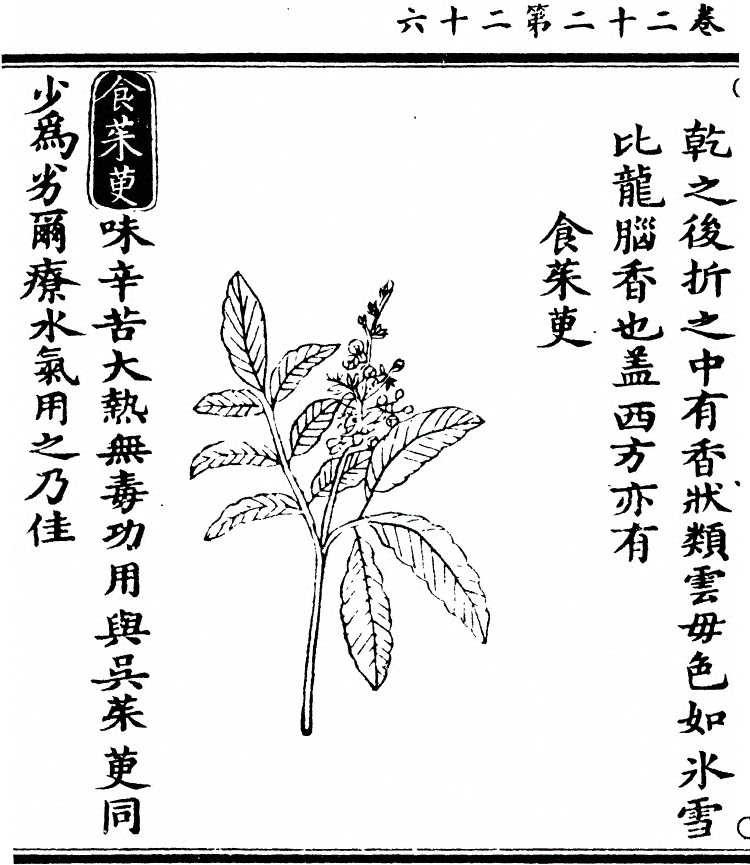 卷二十二第二十六
乾之後折之中有香狀類雲毋色如氷雪
比龍腦香也盖西方亦有
食茱萸
食茱萸味辛苦大熱無毒功用與吳茱萸同
少為劣爾療水氣用之乃佳